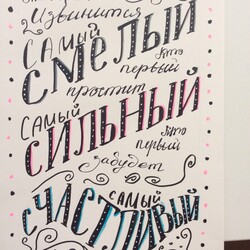 извинится
САМЫЙ
СМЕЛЫЙ
кто
первый
простит
САМЫЙ
СИЛЬНЫЙ
кто
первый
забудет
САМЫЙ
СЧАСТЛИВЫЙ